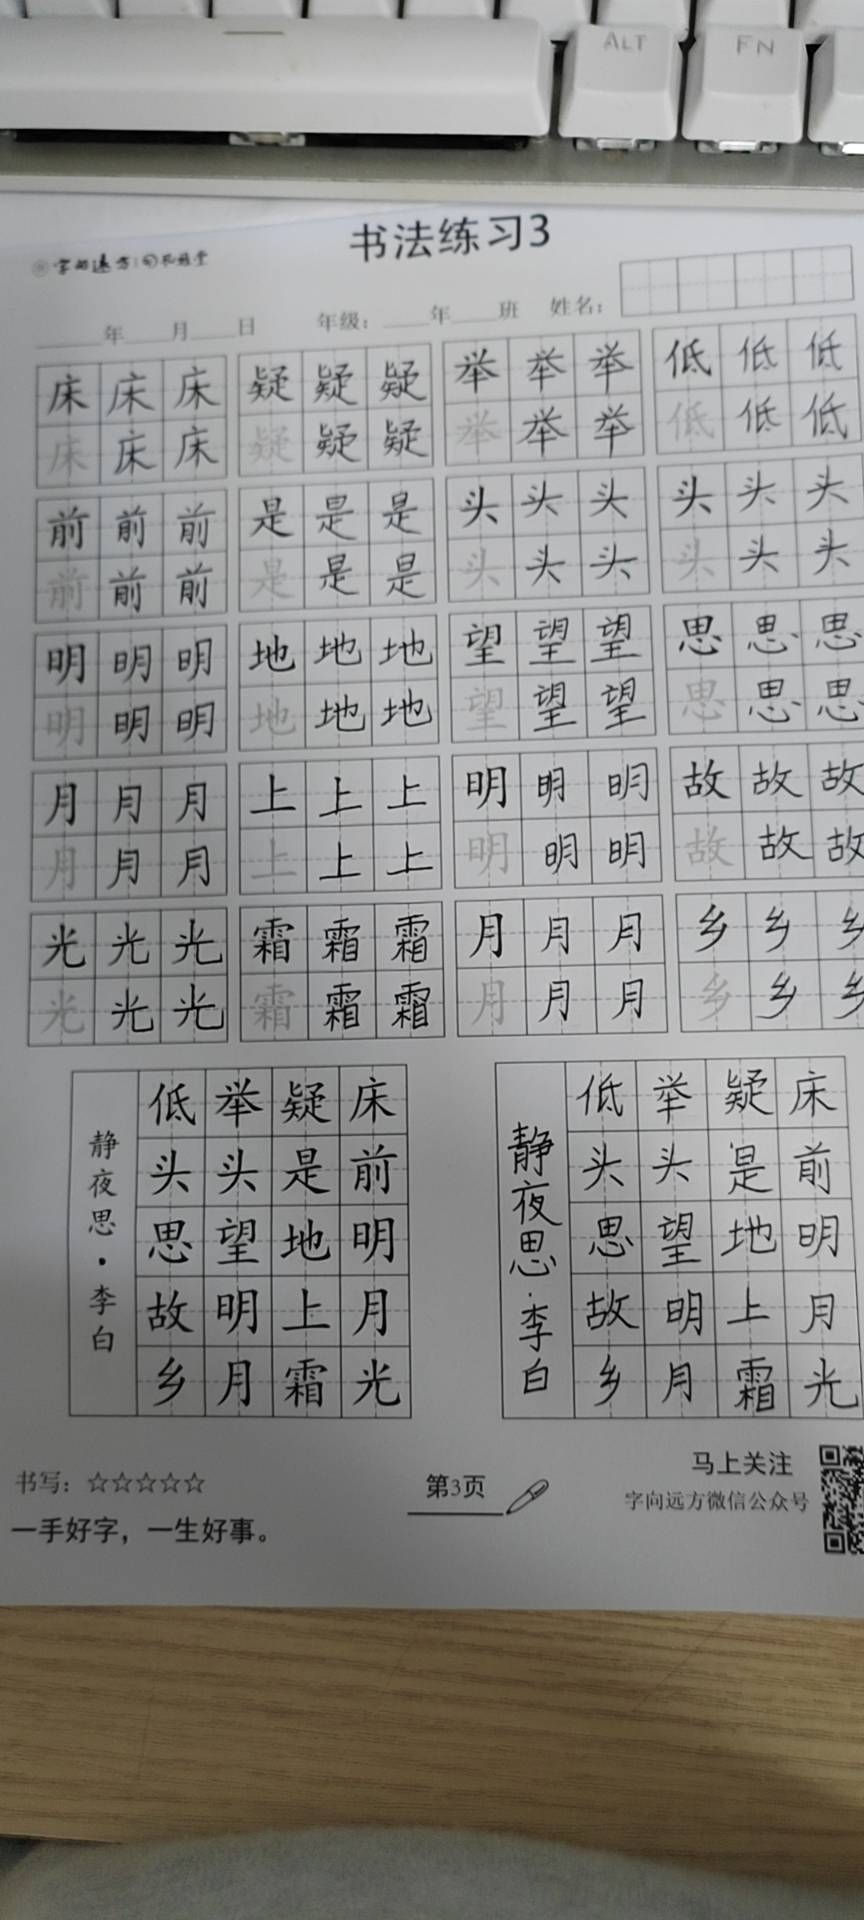 ALT FN
书法练习3
字向远方
年 月 日 年级： 年 班 姓名：
床床床 疑疑疑 举举举 低低低
床床床 疑疑疑 举举举 低低低
前前前 是是是 头头头 头头头
前前前 是是是 头头头 头头头
明明明 地地地 望望望 思思思
明明明 地地地 望望望 思思思
月月月 上上上 明明明 故故故
月月月 上上上 明明明 故故故
光光光 霜霜霜 月月月 乡乡乡
光光光 霜霜霜 月月月 乡乡乡
床前明月光
疑是地上霜
举头望明月
低头思故乡
静夜思·李白
床前明月光
疑是地上霜
举头望明月
低头思故乡
静夜思·李白
书写：☆☆☆☆☆
一手好字，一生好事。
第3页
马上关注
字向远方微信公众号